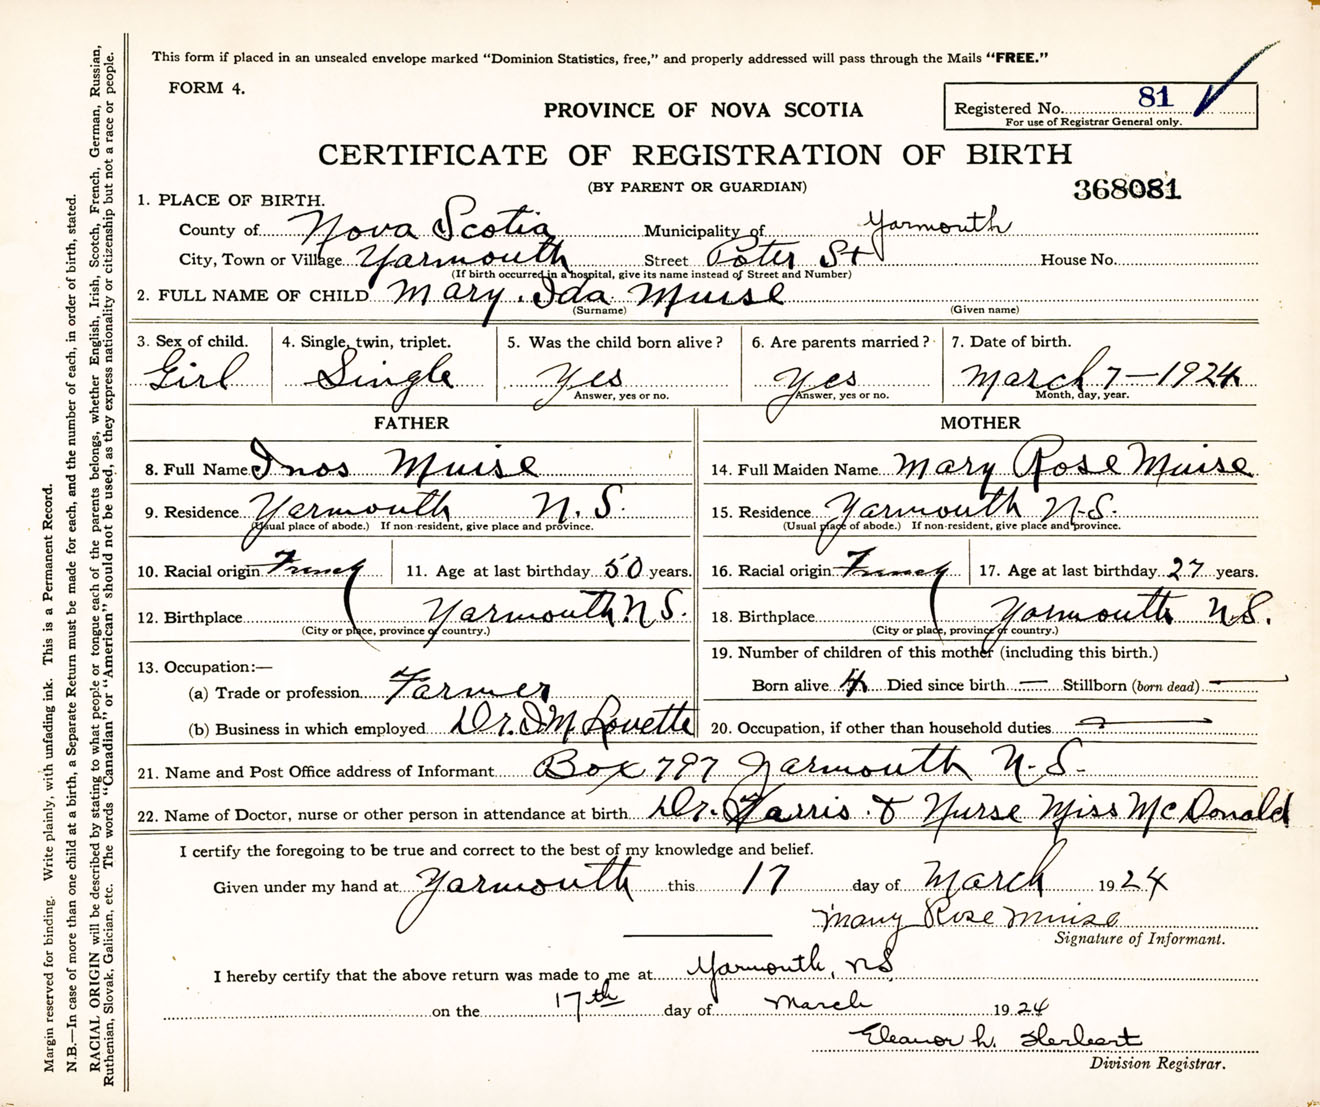 This form if placed in an unsealed envelope marked "Dominion Statistics, free," and properly addressed will pass through the Mails "FREE."
FORM 4.
PROVINCE OF NOVA SCOTIA
Registered No. 81
For use of Registrar General only.
CERTIFICATE OF REGISTRATION OF BIRTH
(BY PARENT OR GUARDIAN)
368081
1. PLACE OF BIRTH.
County of Nova Scotia Municipality of Yarmouth
City, Town or Village Yarmouth Street Poter St House No.
(If birth occurred in a hospital, give its name instead of Street and Number)
2. FULL NAME OF CHILD Mary Ida Muise
(Surname) (Given name)
3. Sex of child. 4. Single, twin, triplet. 5. Was the child born alive? 6. Are parents married? 7. Date of birth.
Girl Single Yes Yes March 7-1924
Answer, yes or no. Answer, yes or no. Month, day, year.
FATHER MOTHER
8. Full Name Inos Muise 14. Full Maiden Name Mary Rose Muise
9. Residence Yarmouth N.S. 15. Residence Yarmouth N.S.
(Usual place of abode.) If non-resident, give place and province. (Usual place of abode.) If non-resident, give place and province.
10. Racial origin French 11. Age at last birthday 50 years. 16. Racial origin French 17. Age at last birthday 27 years.
12. Birthplace Yarmouth N.S. 18. Birthplace Yarmouth N.S.
(City or place, province or country.) (City or place, province or country.)
13. Occupation:— 19. Number of children of this mother (including this birth.)
(a) Trade or profession Farmer Born alive 4 Died since birth — Stillborn (born dead) —
(b) Business in which employed Dr. I M Lovette 20. Occupation, if other than household duties
21. Name and Post Office address of Informant Box 797 Yarmouth N.S.
22. Name of Doctor, nurse or other person in attendance at birth Dr. Harris & Nurse Miss McDonald
I certify the foregoing to be true and correct to the best of my knowledge and belief.
Given under my hand at Yarmouth this 17 day of March 1924
Mary Rose Muise
Signature of Informant.
I hereby certify that the above return was made to me at Yarmouth, NS
on the 17th day of March 1924
Eleanor L. Herbert
Division Registrar.
Margin reserved for binding. Write plainly, with unfading ink. This is a Permanent Record.
N.B.—In case of more than one child at a birth, a Separate Return must be made for each, and the number of each, in order of birth, stated.
RACIAL ORIGIN will be described by stating to what people or tongue each of the parents belongs, whether English, Irish, Scotch, French, German, Russian,
Ruthenian, Slovak, Galician, etc. The words "Canadian" or "American" should not be used, as they express nationality or citizenship but not a race or people.